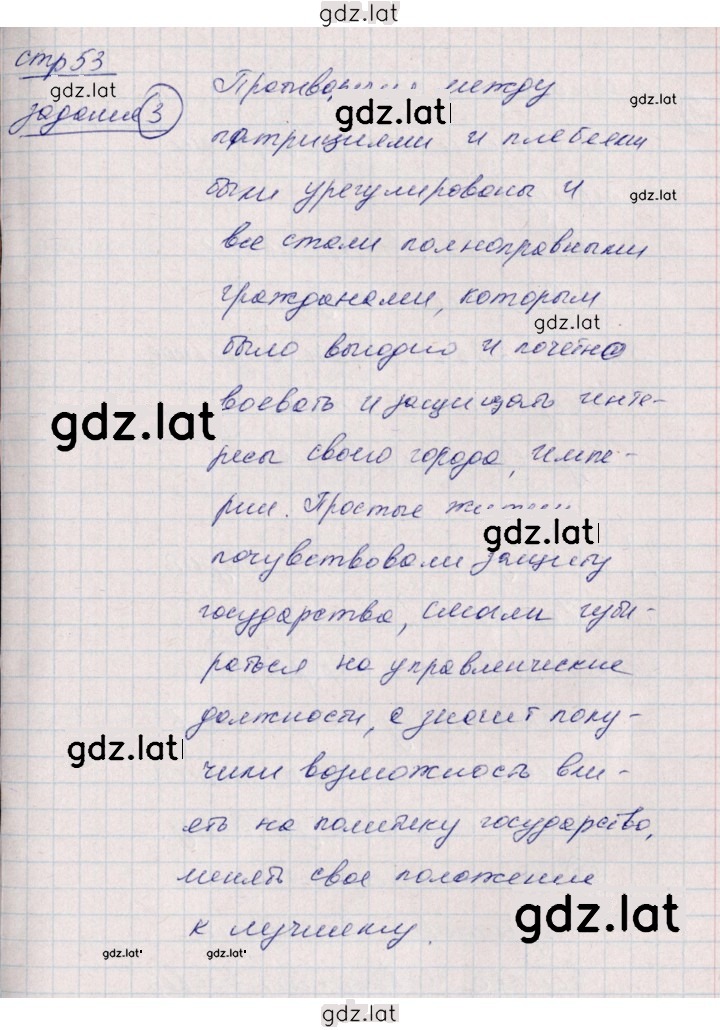 gdz.lat
стр 53
gdz.lat
задание 3
между
gdz.lat
gdz.lat
патрициями и плебеями
были урегулированы и
gdz.lat
все стали полноправными
гражданами, которым
gdz.lat
было выгодно и почётно
воевать и защищать инте-
gdz.lat
ресы своего города, импе-
рии. Простые
gdz.lat
почувствовали защиту
государства, смогли
раться на управленические
должности, а значит полу-
gdz.lat
чили возможность вли-
ять на политику государства,
менять свое положение
gdz.lat
к лучшему.
gdz.lat
gdz.lat
gdz.lat